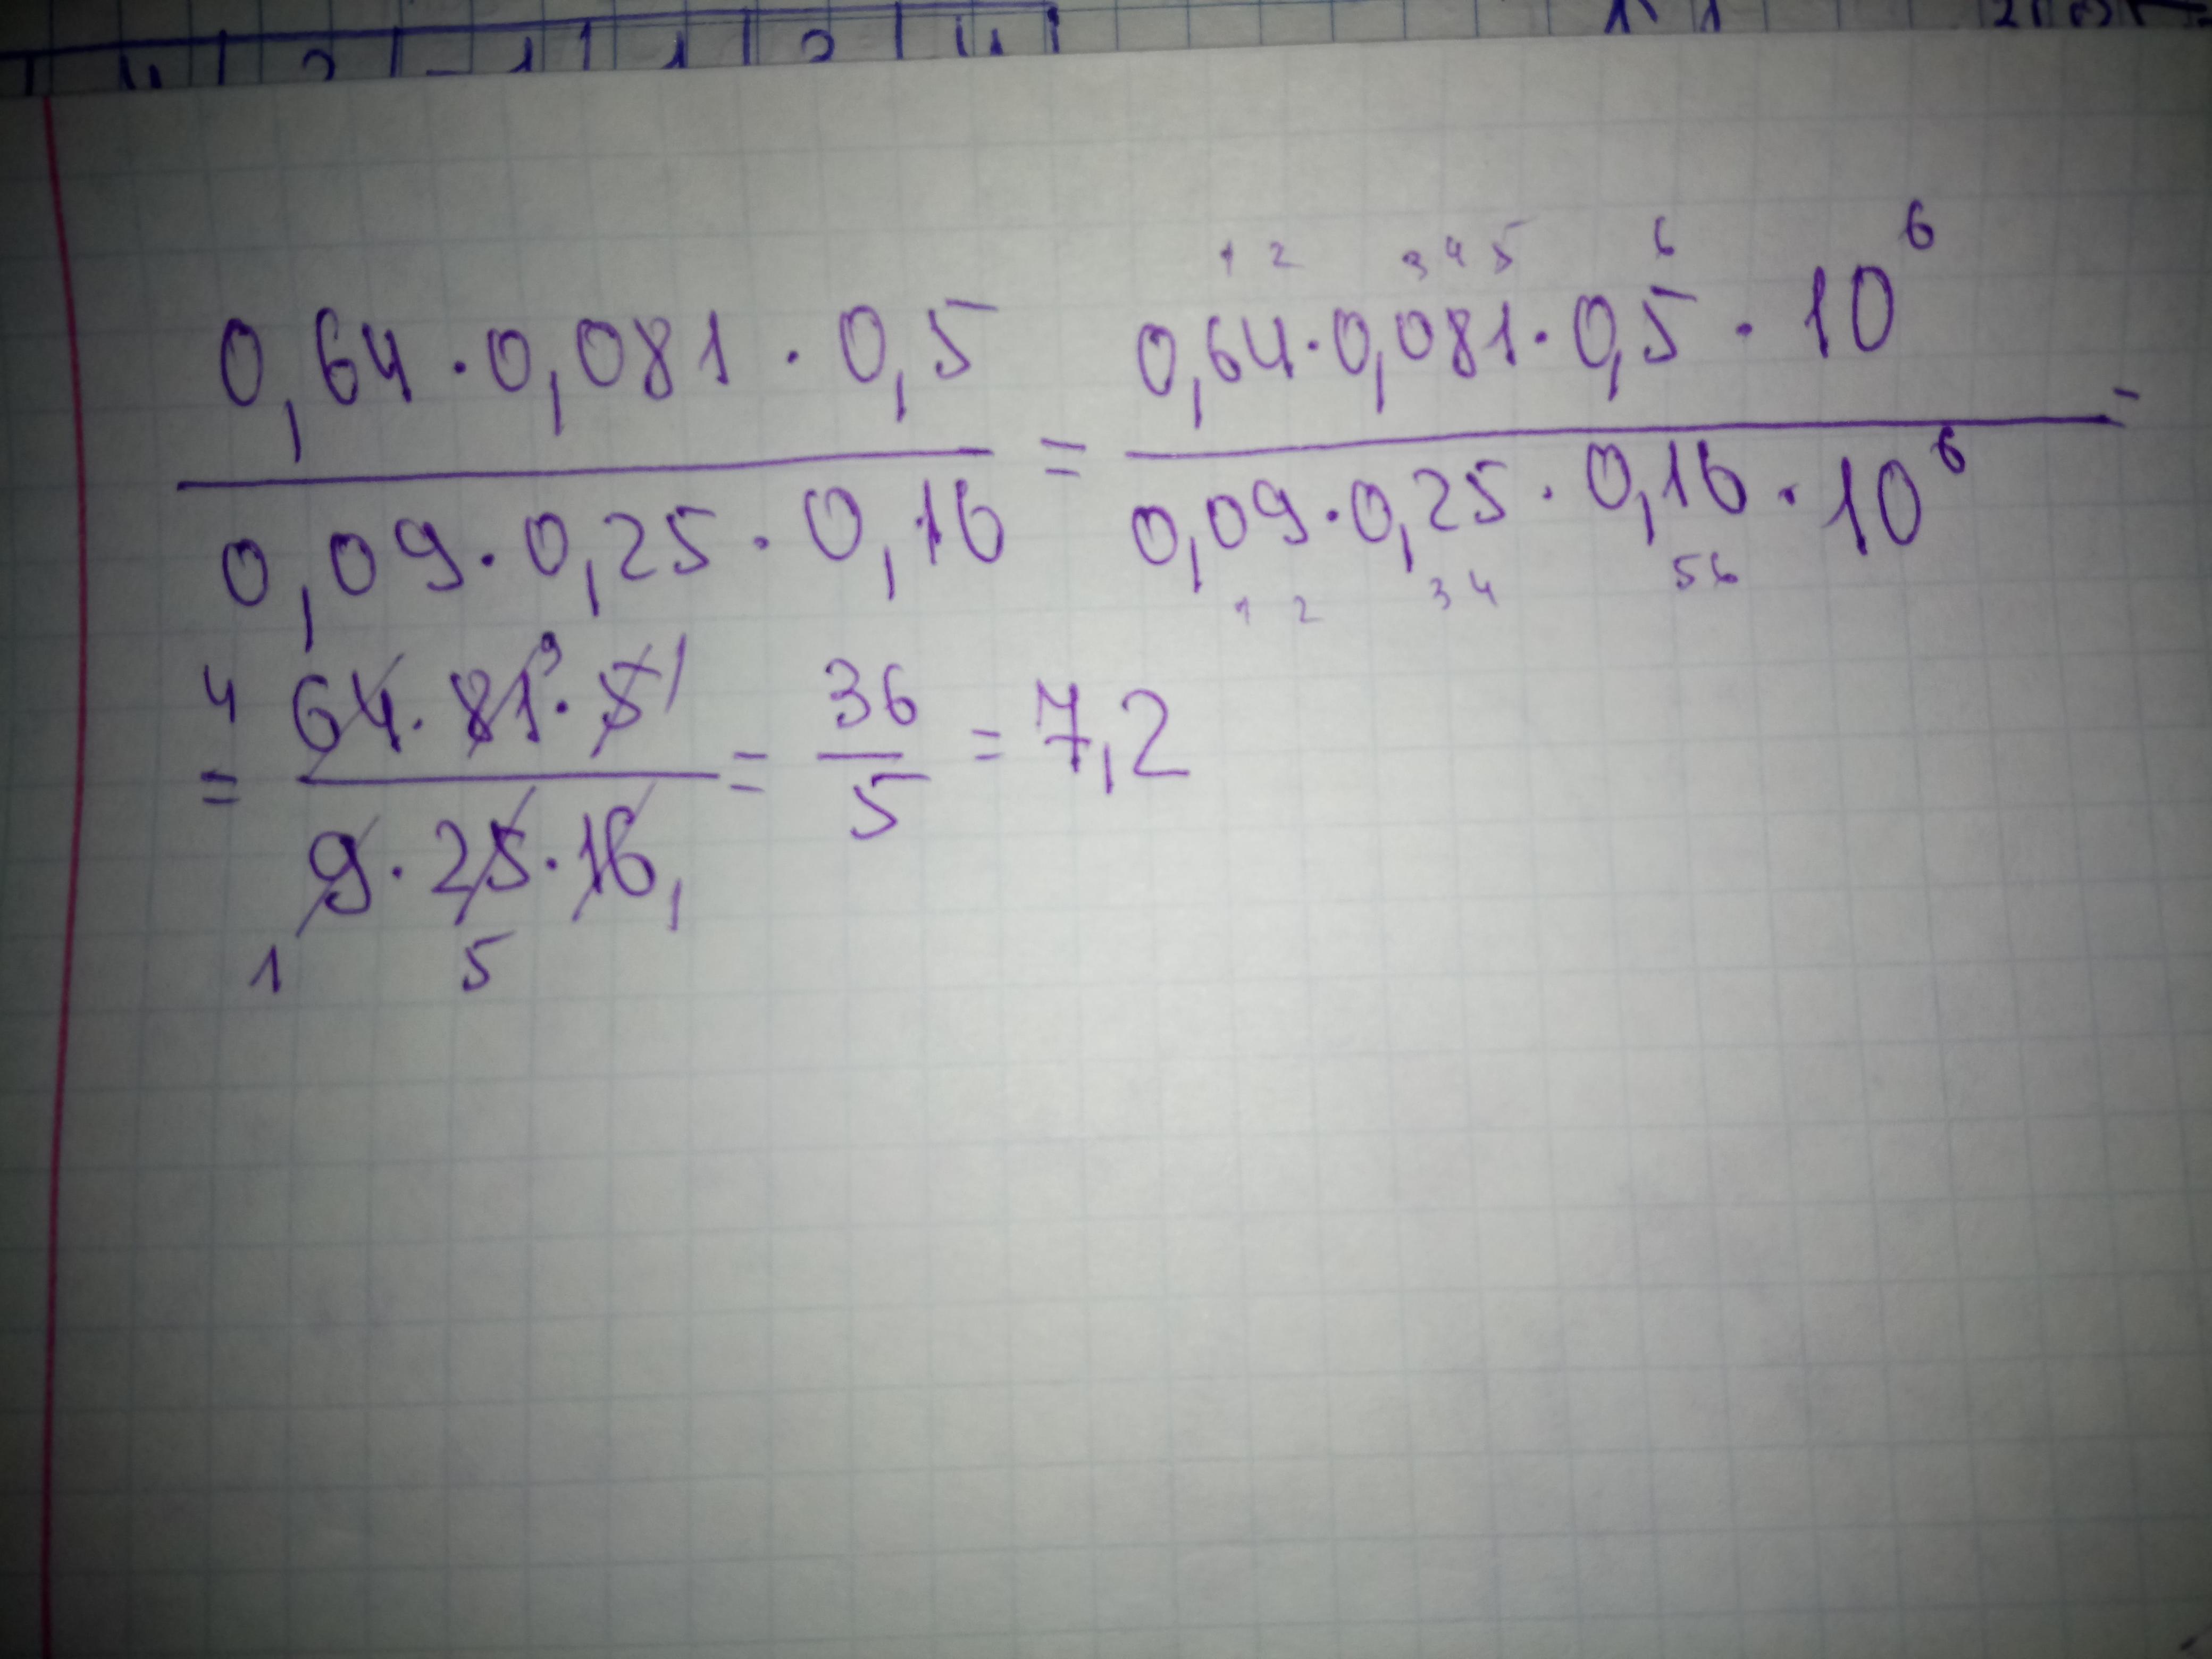 0,64 · 0,081 · 0,5 / 0,09 · 0,25 · 0,16 = 0,64 · 0,081 · 0,5 · 10^6 / 0,09 · 0,25 · 0,16 · 10^6 =
1 2 3 4 5 6
1 2 3 4 5 6
= 64 · 81 · 5 / 9 · 25 · 16 = 36 / 5 = 7,2
4 9 1
1 5 1